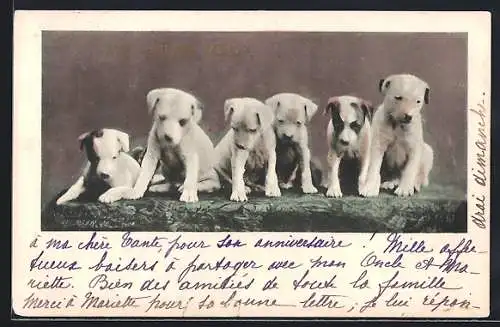 à ma chère Tante, pour son anniversaire ! Mille affec-
tueux baisers à partager avec mon Oncle et Ma-
riette. Bien des amitiés de toute la famille
Merci à Mariette pour sa bonne lettre ; je lui répon-
drai dimanche.